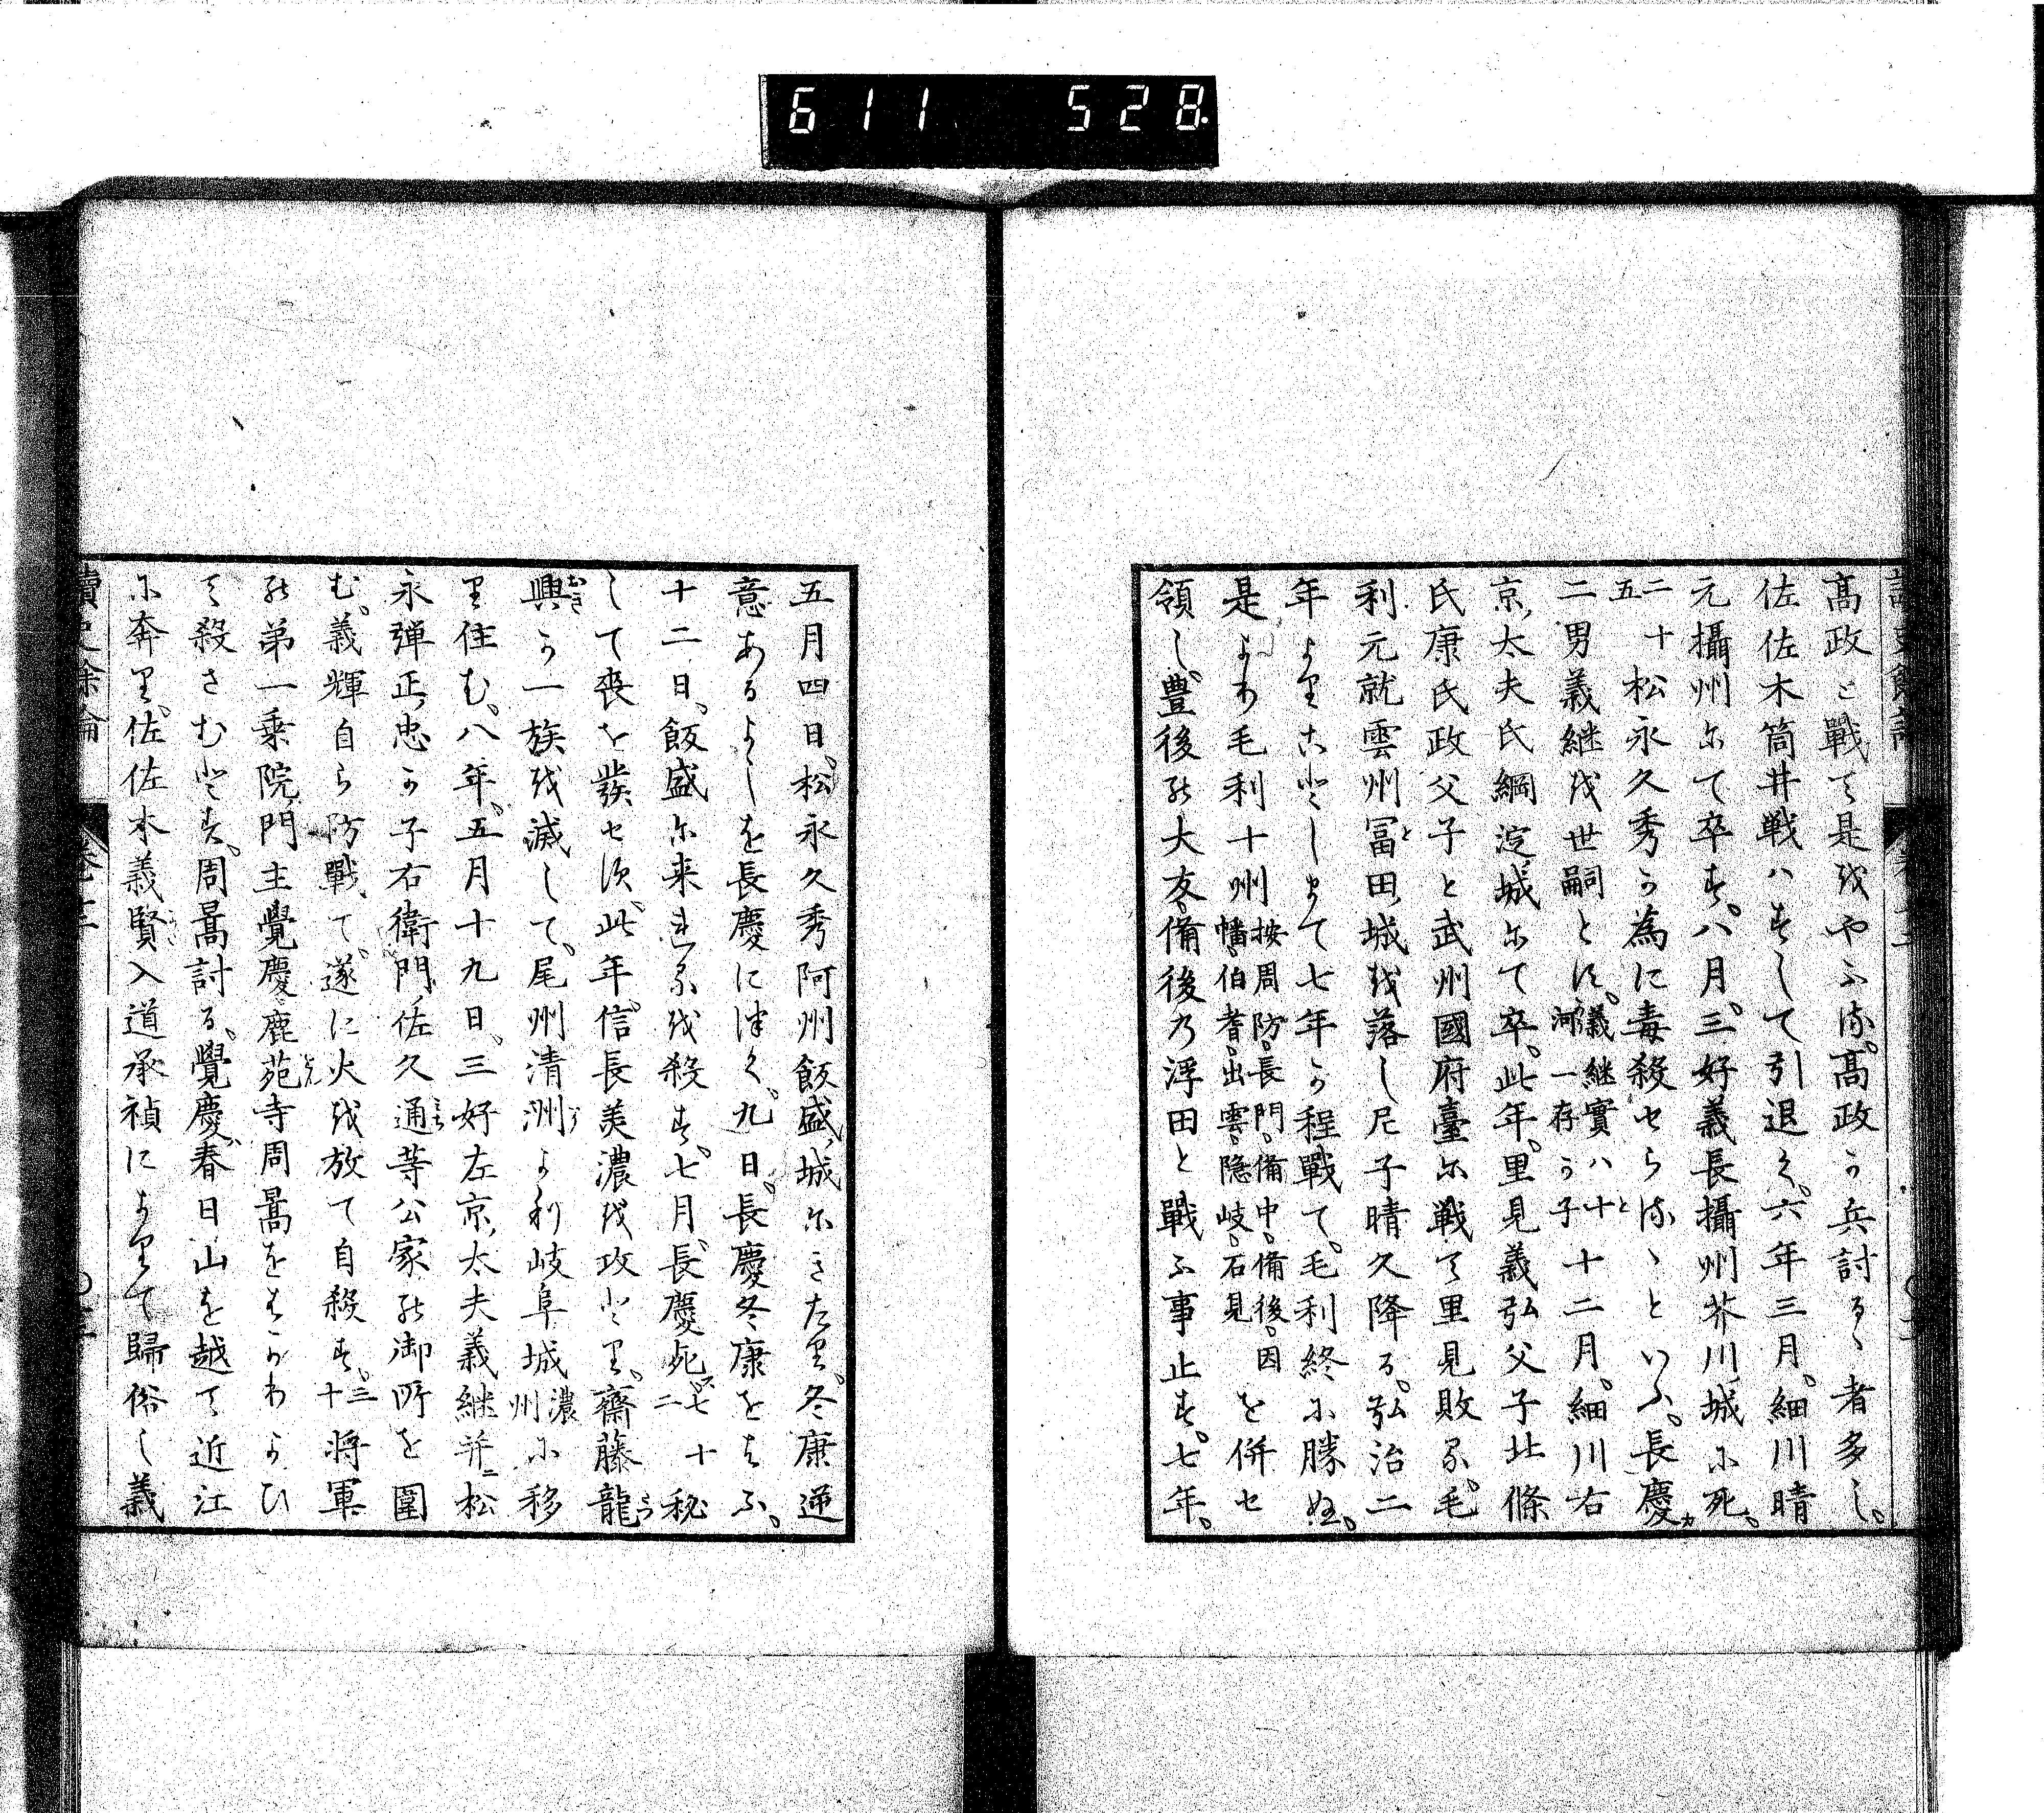 611 528
高政と戰て是をやふる。高政か兵討るゝ者多し。
佐佐木筒井戰ハすして引退く。六年三月。細川晴
元攝州にて卒す。八月。三好義長攝州芥川城に死。
二十五 松永久秀か為に毒殺せらるゝといふ。長慶
二男義継を世嗣とす。義継實ハ十河一存か子 十二月。細川右
京太夫氏綱淀城にて卒。此年。里見義弘父子北條
氏康氏政父子と武州國府臺に戰て里見敗る。毛
利元就雲州冨田城を落し尼子晴久降る。弘治二
年よりことしまて七年か程戰て。毛利終に勝ぬ。
是より毛利十州 按周防。長門。備中。備後。因幡。伯耆。出雲。隠岐。石見 を併せ
領し。豊後の大友。備後乃浮田と戰ふ事止す。七年。
五月四日。松永久秀阿州飯盛城にきたり。冬康逆
意あるよしを長慶に讒く。九日。長慶冬康をよふ。
十二日。飯盛に来れるを殺す。七月。長慶死す 十二 秘
して喪を發せす。此年。信長美濃を攻とり。齋藤龍
興か一族を滅して。尾州清洲より岐阜城 濃州 に移
り住む。八年。五月十九日。三好左京太夫義継并ニ松
永弾正忠か子右衛門佐久通等公家の御所を圍
む。義輝自ら防戰て。遂に火を放て自殺す。三十 将軍
の弟一乗院門主覺慶鹿苑寺周暠をもおひ
て殺さむとす。周暠討る。覺慶。春日山を越て近江
に奔り。佐佐木義賢入道承禎によりて歸俗し義
讀史餘論 巻十二